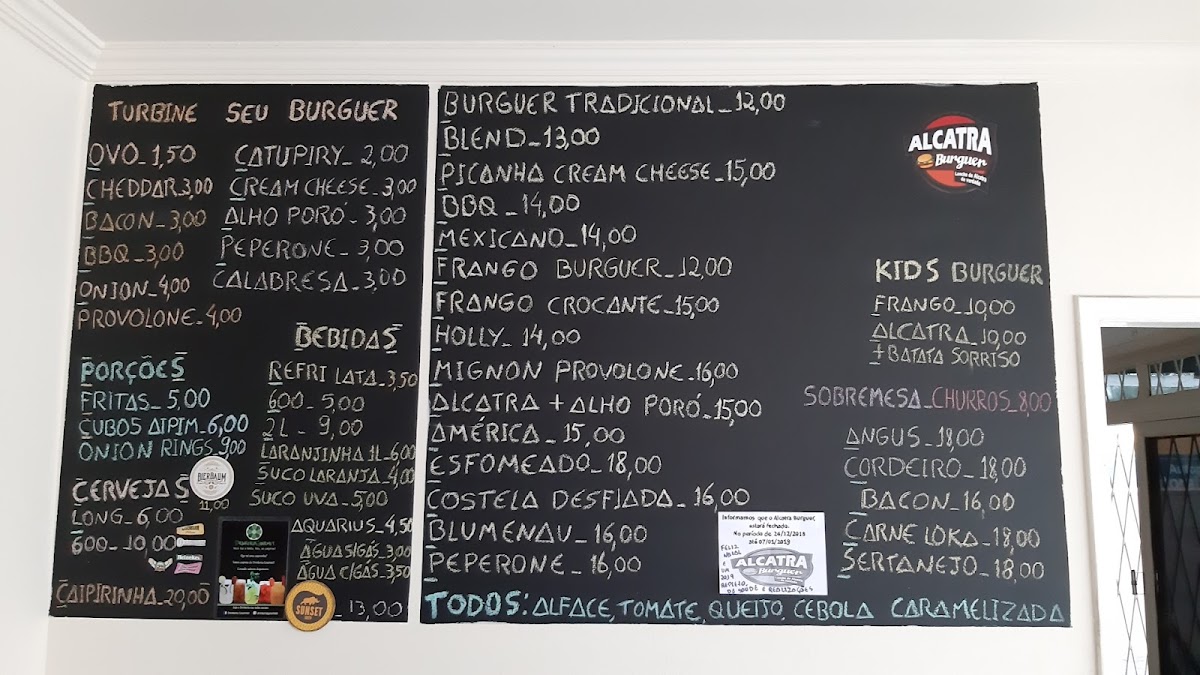 TURBINE SEU BURGUER
OVO_1,50
CHEDDAR_3,00
BACON_3,00
BBQ_3,00
ONION_4,00
PROVOLONE_4,00
CATUPIRY_2,00
CREAM CHEESE_3,00
ALHO PORÓ_3,00
PEPERONE_3,00
CALABRESA_3,00
PORÇÕES
FRITAS_5,00
CUBOS AIPIM_6,00
ONION RINGS_9,00
CERVEJAS
BIERBAUM
11,00
LONG_6,00
600_10,00
Heineken
CAIPIRINHA_20,00
BEBIDAS
REFRI LATA_3,50
600_5,00
2L_9,00
LARANJINHA 1L_6,00
SUCO LARANJA_4,00
SUCO UVA_5,00
AQUARIUS_4,50
ÁGUA S/GÁS_3,00
ÁGUA C/GÁS_3,50
SUNSET
_13,00
BURGUER TRADICIONAL_12,00
BLEND_13,00
PICANHA CREAM CHEESE_15,00
BBQ_14,00
MEXICANO_14,00
FRANGO BURGUER_12,00
FRANGO CROCANTE_15,00
HOLLY_14,00
MIGNON PROVOLONE_16,00
ALCATRA + ALHO PORÓ_15,00
AMÉRICA_15,00
ESFOMEADO_18,00
COSTELA DESFIADA_16,00
BLUMENAU_16,00
PEPERONE_16,00
ALCATRA
Burguer
Lanche de Alcatra
de verdade
KIDS BURGUER
FRANGO_10,00
ALCATRA_10,00
+ BATATA SORRISO
SOBREMESA_CHURROS_8,00
ANGUS_18,00
CORDEIRO_18,00
BACON_16,00
CARNE LOKA_18,00
SERTANEJO_18,00
Informamos que o Alcatra Burguer,
estará fechado.
No período de 24/12/2018
até 07/01/2019
FELIZ
NATAL
E UM
2019
REPLETO
DE SAÚDE E REALIZAÇÕES
ALCATRA
Burguer
TODOS: ALFACE, TOMATE, QUEIJO, CEBOLA CARAMELIZADA